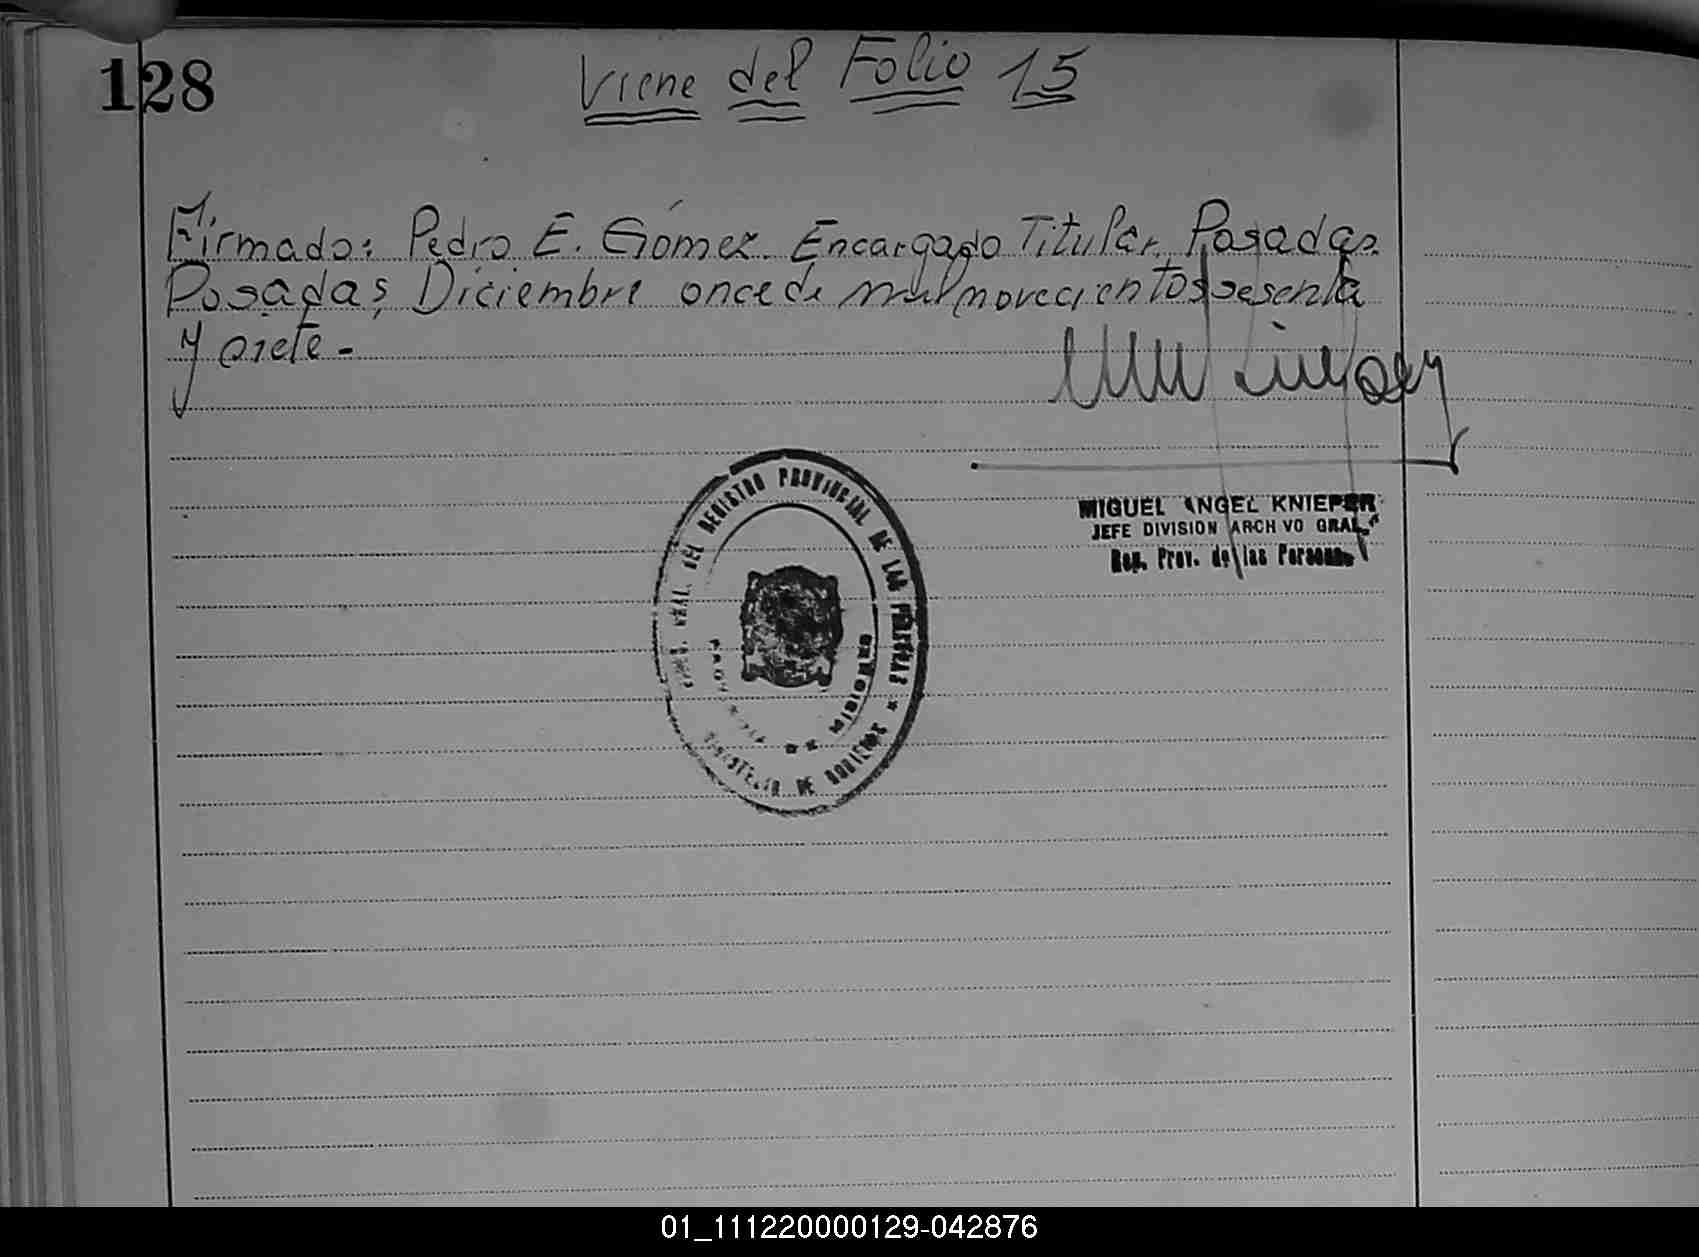 128
Viene del Folio 15
Firmado: Pedro E. Gómez. Encargado Titular. Posadas.
Posadas, Diciembre once de mil novecientos sesenta
y siete -
DEL REGISTRO PROVINCIAL DE LAS PERSONAS *
MINISTERIO DE GOBIERNO
MISIONES
MIGUEL ANGEL KNIEPER
JEFE DIVISION ARCHIVO GRAL.
Reg. Prov. de las Personas
01_111220000129-042876